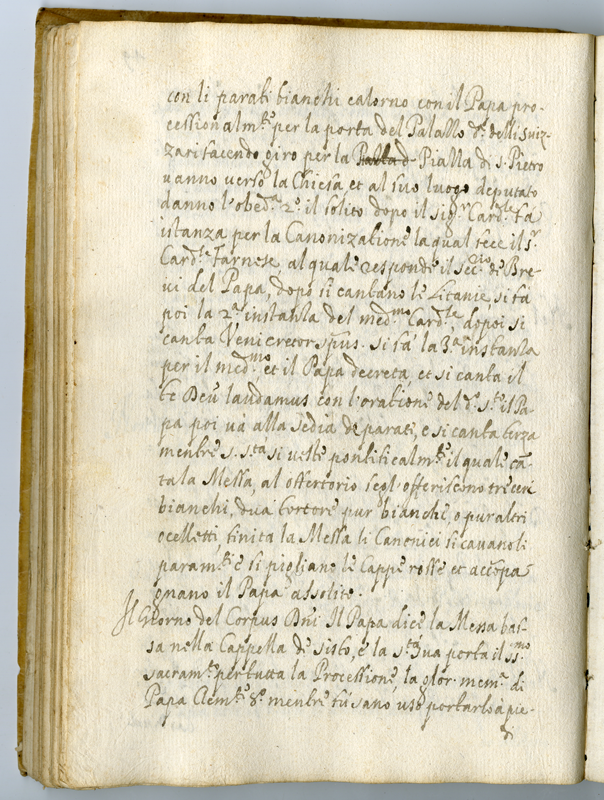 con li parati bianchi calorno con il Papa pro-
cessionalm.te per la porta del Palazzo d.a delli Suiz-
zari facendo giro per la Piazza di S. Pietro
vanno verso la Chiesa, et al suo luogo deputato
danno l'obed.a 2.o il solito dopo il sig.r Card.le fa
istanza per la Canonizatione la qual fece il s.r
Card.le Farnese, al quale responde il Sec.rio de Bre-
vi del Papa, dopo si cantano le Litanie, si fà
poi la 2.a instanza del med.mo Card.le, dopoi si
canta Veni creator sp̃us. si fà la 3.a instanza
per il med.mo et il Papa decreta, et si canta il
te Deũ laudamus con l'oratione del d.o s.to il Pa-
pa poi và alla sedia de parati, e si canta terza
mentre S. S.ta si veste pontificalm.te il quale cã
ta la Messa, al offertorio segl'offeriscono tre ceri
bianchi, dua tortore pur bianche, o pur altri
ocelletti, finita la Messa li Canonici si cavano li
param.ti e si pigliano le Cappe rosse et accõpa
gnano il Papa al solito.
Il Giorno del Corpus Dñi Il Papa dice la Messa bas-
sa nella Cappella de Sisto, e la s.tà sua porta il ss.mo
sacram.to per tutta la Processione, la glor. mem.a di
Papa Clem.te 8.o mentre fù sano usò portarlo à pie-
di